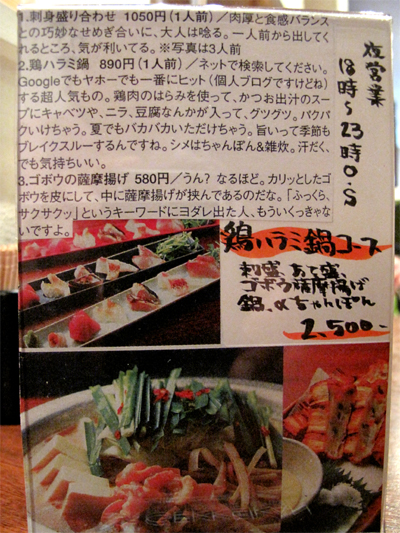 1.刺身盛り合わせ 1050円(1人前)/肉厚と食感バランス
との巧妙なせめぎ合いに、大人は唸る。一人前から出してく
れるところ、気が利いてる。※写真は3人前
2.鶏ハラミ鍋 890円(1人前)/ネットで検索してください。
Googleでもヤホーでも一番にヒット(個人ブログですけどね)
する超人気もの。鶏肉のはらみを使って、かつお出汁のスー
プにキャベツや、ニラ、豆腐なんかが入って、グツグツ。パクパ
クいけちゃう。夏でもバカバカいただけちゃう。旨いって季節も
ブレイクスルーするんですね。シメはちゃんぽん&雑炊。汗だく、
でも気持ちいい。
3.ゴボウの薩摩揚げ 580円/うん? なるほど。カリッとしたゴ
ボウを皮にして、中に薩摩揚げが挟んであるのだな。「ふっくら、
サクサクッ」というキーワードにヨダレ出た人、もういくっきゃな
いですよ。
夜営業
18時~23時O.S
鶏ハラミ鍋コース
刺盛、あて盛、
ゴボウ薩摩揚げ
鍋、〆ちゃんぽん
2,500-